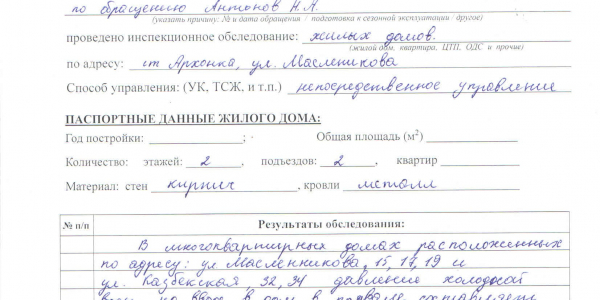 по обращению Антонов Н.А.
(указать причину: № и дата обращения / подготовка к сезонной эксплуатации / другое)
проведено инспекционное обследование: жилых домов.
(жилой дом, квартира, ЦТП, ОДС и прочие)
по адресу: ст Архонка, ул. Масленикова
Способ управления: (УК, ТСЖ, и т.п.) непосредственное управление
ПАСПОРТНЫЕ ДАННЫЕ ЖИЛОГО ДОМА:
Год постройки: ; Общая площадь (м²)
Количество: этажей: 2, подъездов: 2, квартир
Материал: стен кирпич, кровли металл
№ п/п Результаты обследования:
В многоквартирных домах расположенных
по адресу: ул Масленникова, 15, 17, 19 и
ул. Казбекская, 32, 34 давление холодной
воды на вводе в дом в подвале составляет